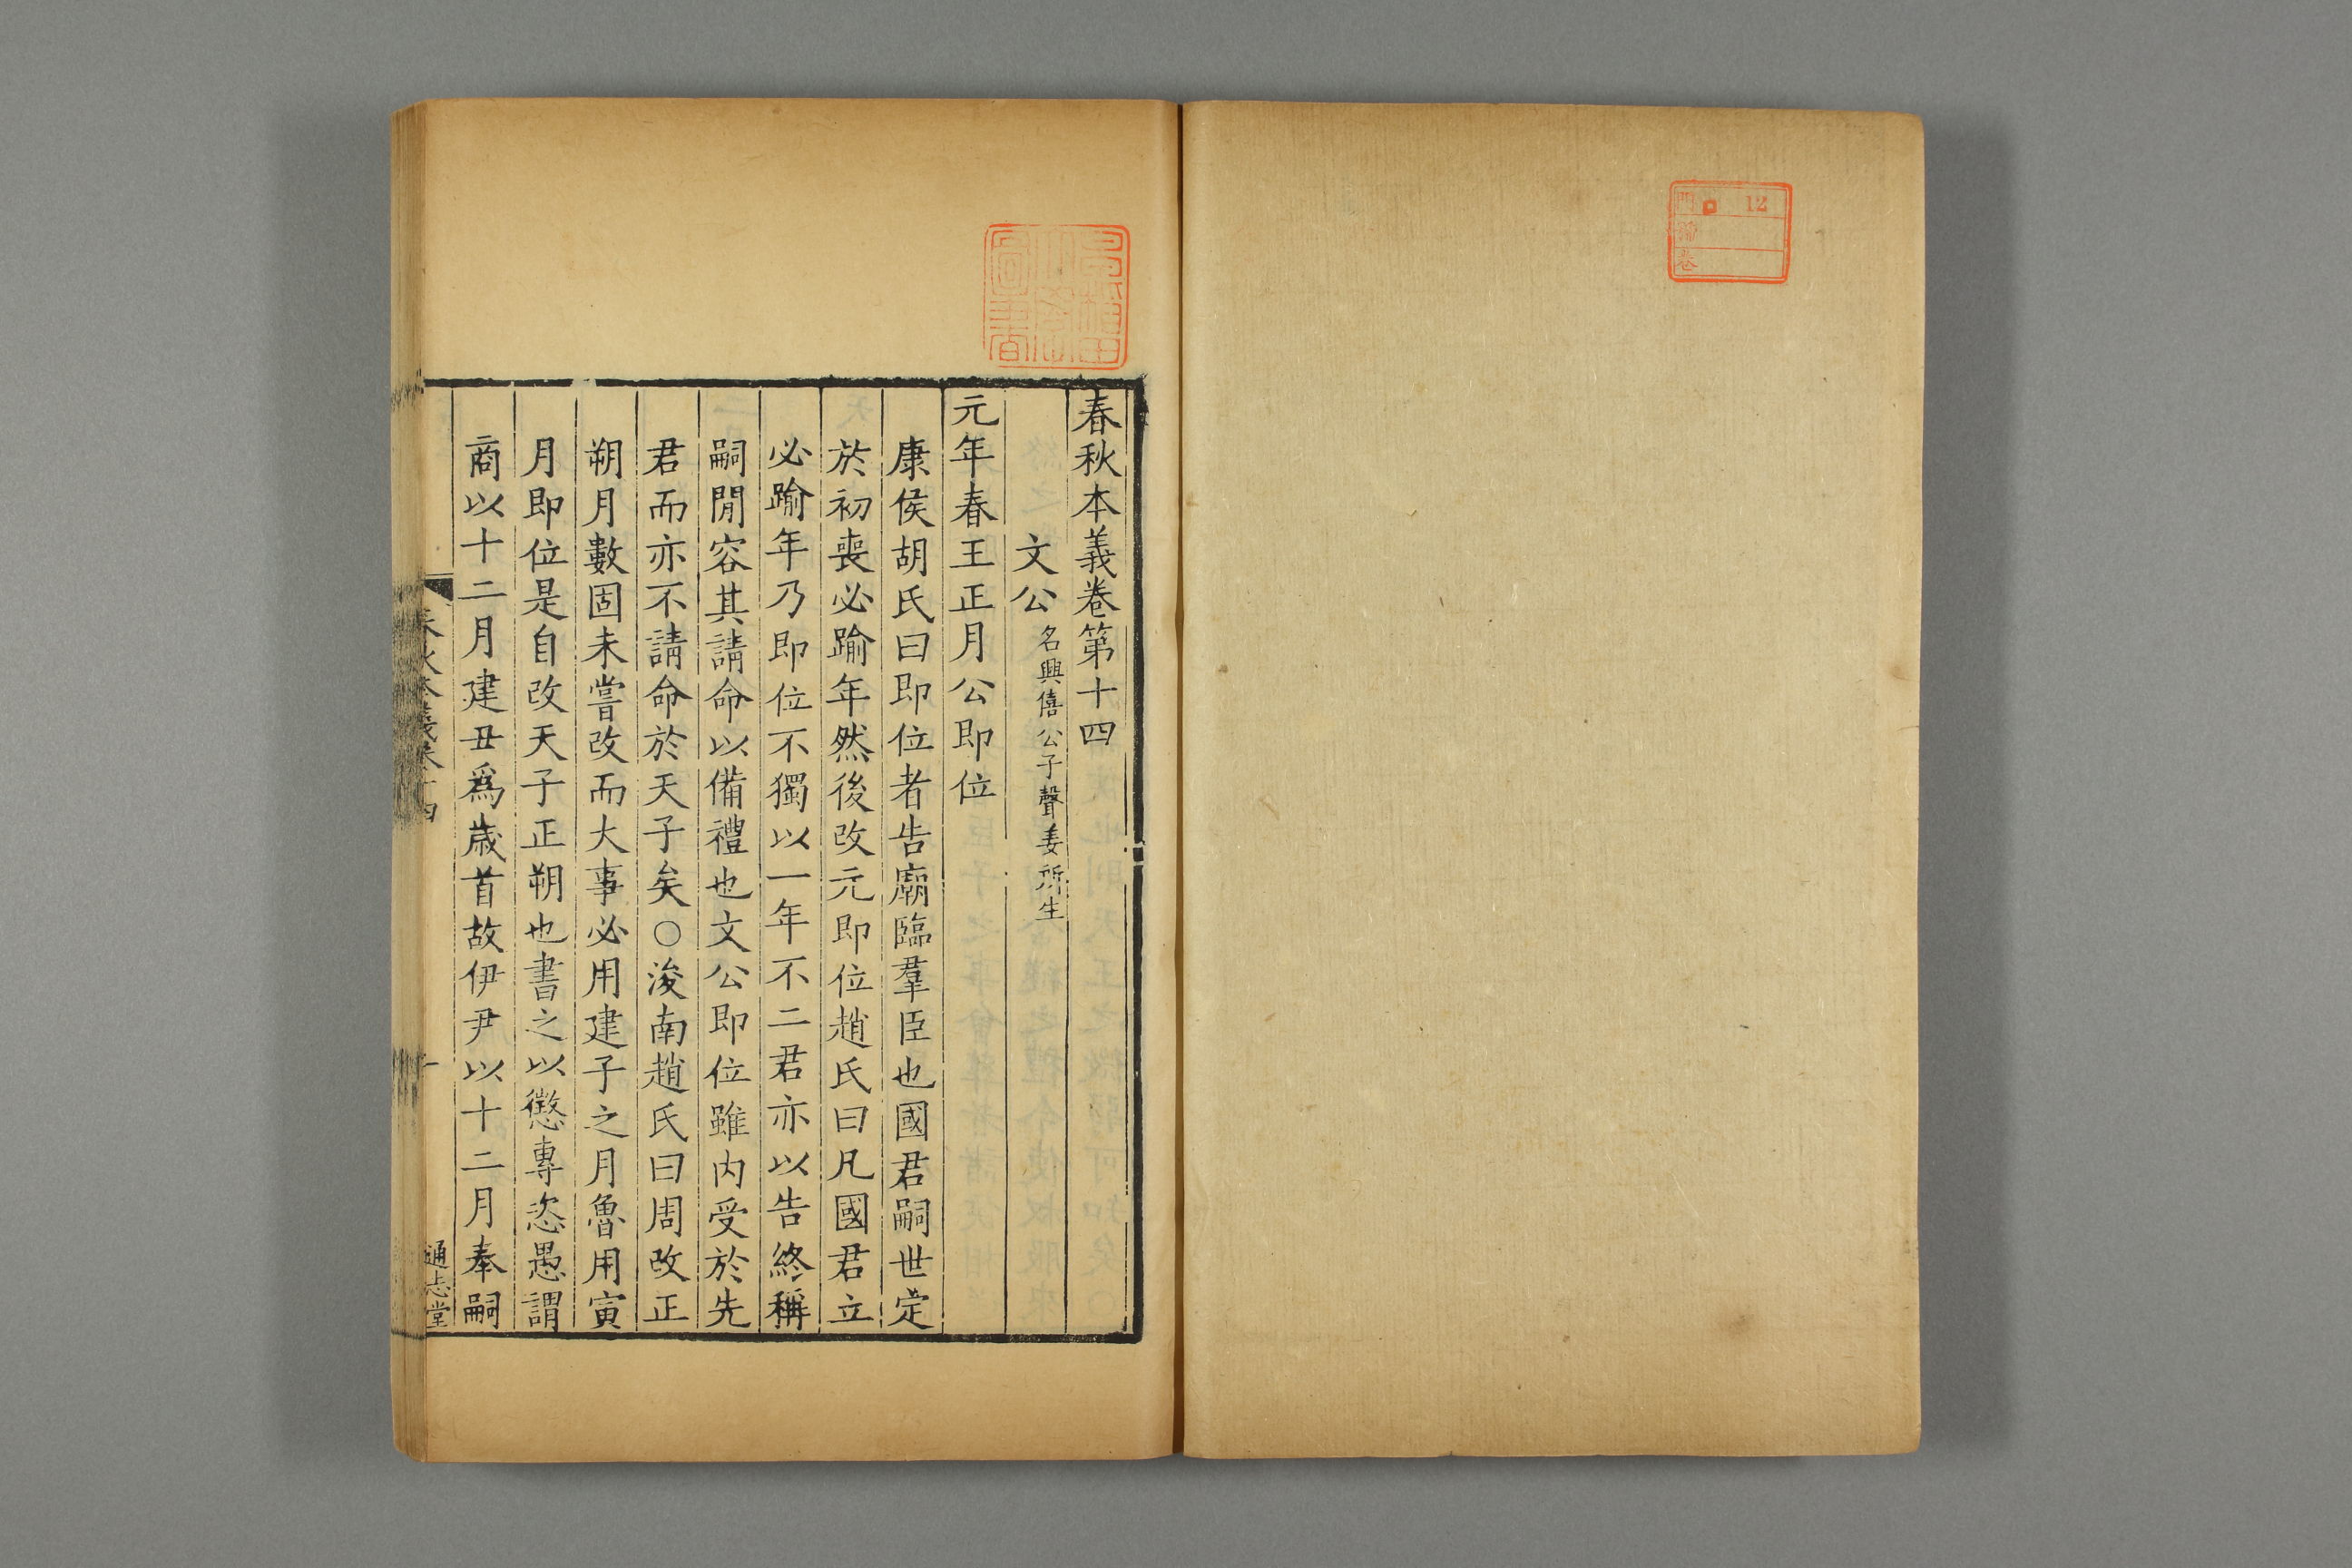 門 12
號
卷
春秋本義卷第十四
文公 名興僖公子聲姜所生
元年春王正月公即位
康侯胡氏曰即位者告廟臨羣臣也國君嗣世定
於初喪必踰年然後改元即位趙氏曰凡國君立
必踰年乃即位不獨以一年不二君亦以告終稱
嗣閒容其請命以備禮也文公即位雖内受於先
君而亦不請命於天子矣○浚南趙氏曰周改正
朔月數固未嘗改而大事必用建子之月魯用寅
月即位是自改天子正朔也書之以懲專恣愚謂
商以十二月建丑爲歲首故伊尹以十二月奉嗣
春秋本義卷十四
一
通志堂